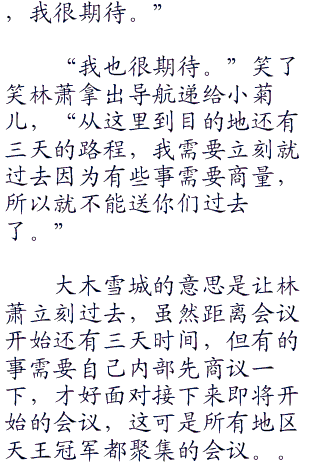 ，我很期待。”
“我也很期待。”笑了
笑林萧拿出导航递给小菊
儿，“从这里到目的地还有
三天的路程，我需要立刻就
过去因为有些事需要商量，
所以就不能送你们过去
了。”
大木雪城的意思是让林
萧立刻过去，虽然距离会议
开始还有三天时间，但有的
事需要自己内部先商议一
下，才好面对接下来即将开
始的会议，这可是所有地区
天王冠军都聚集的会议。。